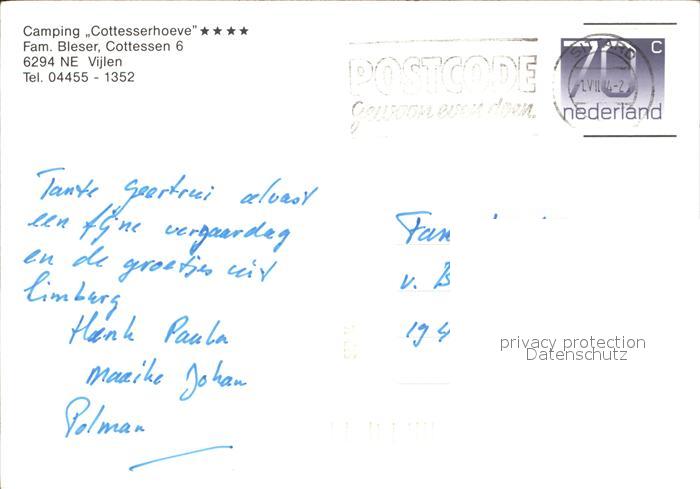 Camping „Cottesserhoeve"★★★★
Fam. Bleser, Cottessen 6
6294 NE Vijlen
Tel. 04455 - 1352
POSTCODE
gewoon even doen.
70 c
nederland
Tante Geertrui alvast
een fijne verjaardag
en de groetjes uit
Limburg
Henk Paula
Maaike Johan
Polman
Fam
v. B
194
privacy protection
Datenschutz